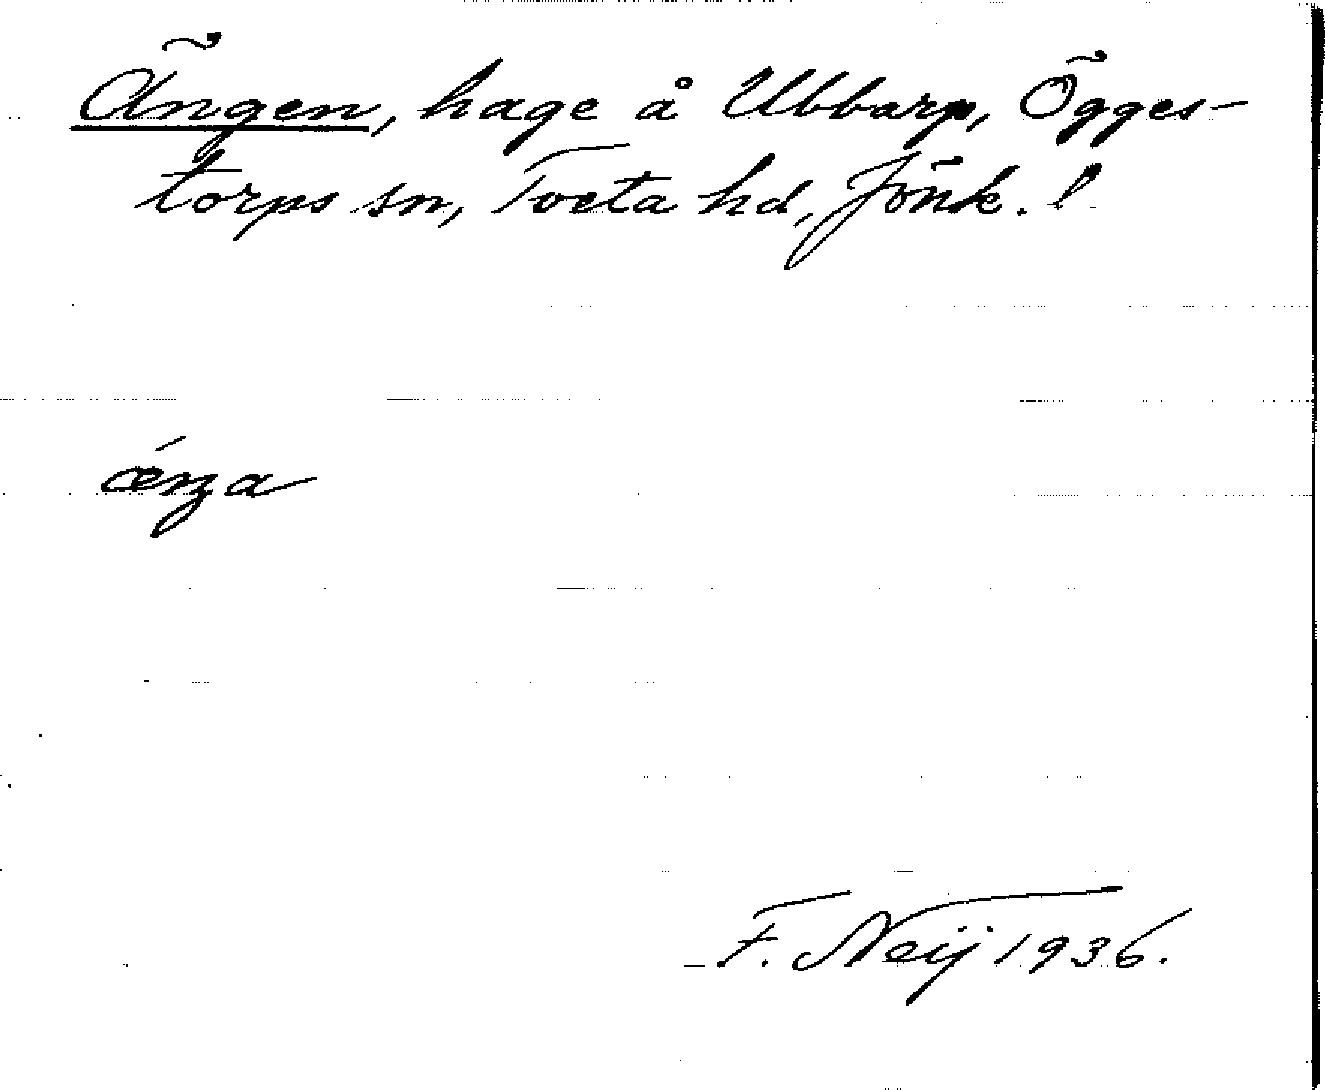 Ängen, hage å Ubbarp, Ögges-
torps sn, Tveta hd, Jönk. l.
F. Neij 1936.